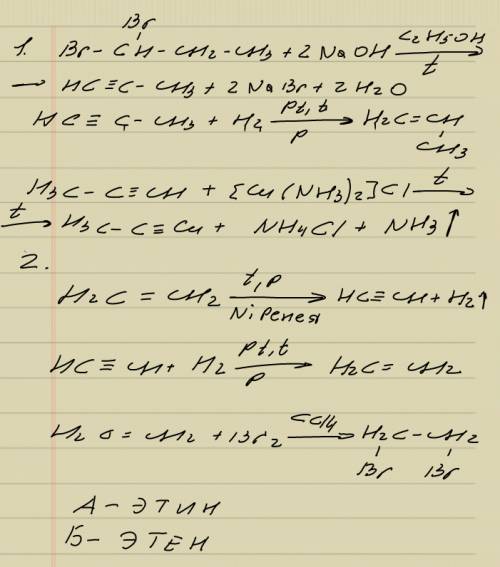 Br
1. Br - CH - CH2 - CH3 + 2 NaOH C2H5OH t →
→ HC ≡ C - CH3 + 2 NaBr + 2 H2O
HC ≡ C - CH3 + H2 Pt, t P → H2C = CH
CH3
H3C - C ≡ CH + [Cu(NH3)2]Cl t →
t → H3C - C ≡ Cu + NH4Cl + NH3 ↑
2.
H2C = CH2 t, p Ni Ренея → HC ≡ CH + H2 ↑
HC ≡ CH + H2 Pt, t P → H2C = CH2
H2C = CH2 + Br2 CCl4 → H2C - CH2
Br Br
А - ЭТИН
Б - ЭТЕН